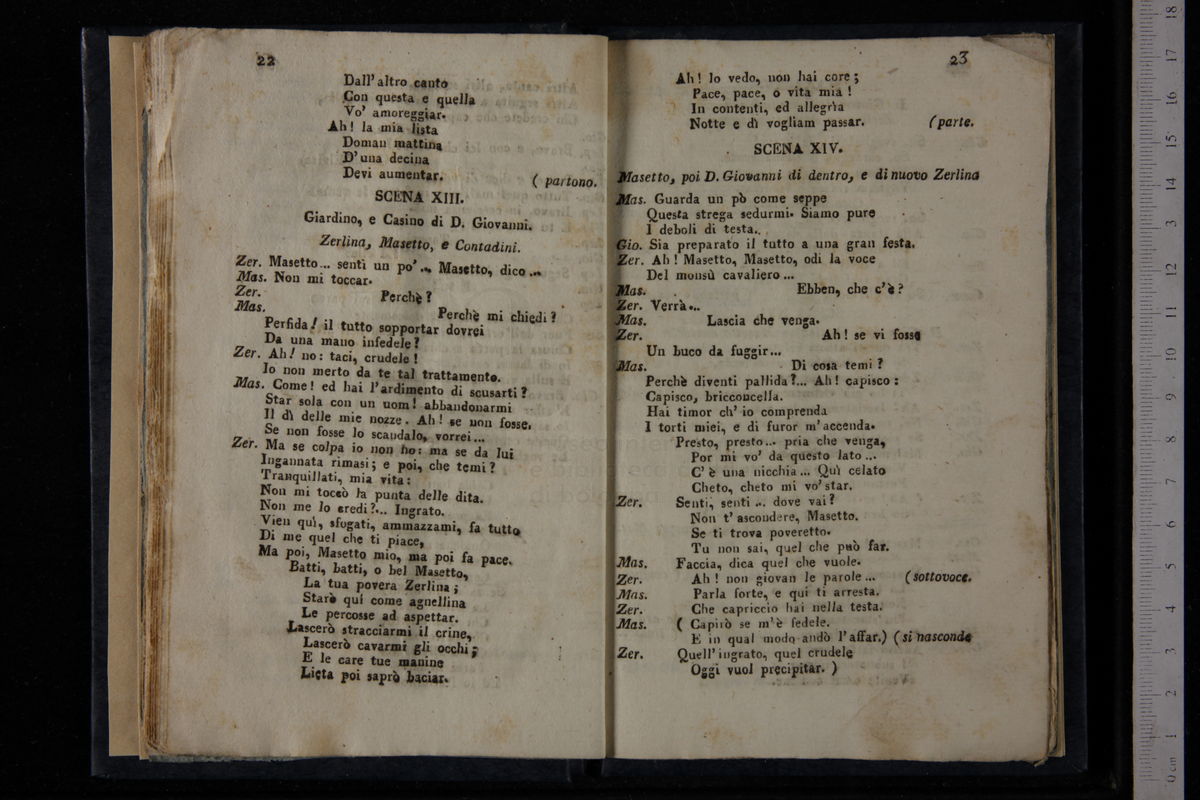 22
Dall' altro canto
Con questa e quella
Vo' amoreggiar.
Ah! la mia lista
Doman mattina
D' una decina
Devi aumentar. ( partono.
SCENA XIII.
Giardino, e Casino di D. Giovanni.
Zerlina, Masetto, e Contadini.
Zer. Masetto... senti un po'... Masetto, dico...
Mas. Non mi toccar.
Zer. Perchè?
Mas. Perchè mi chiedi?
Perfida! il tutto sopportar dovrei
Da una mano infedele?
Zer. Ah! no: taci, crudele!
Io non merto da te tal trattamento.
Mas. Come! ed hai l' ardimento di scusarti?
Star sola con un uom! abbandonarmi
Il dì delle mie nozze. Ah! se non fosse,
Se non fosse lo scandalo, vorrei...
Zer. Ma se colpa io non ho: ma se da lui
Ingannata rimasi; e poi, che temi?
Tranquillati, mia vita:
Non mi toccò la punta delle dita.
Non me lo credi?... Ingrato.
Vien quì, sfogati, ammazzami, fa tutto
Di me quel che ti piace,
Ma poi, Masetto mio, ma poi fa pace.
Batti, batti, o bel Masetto,
La tua povera Zerlina;
Starò quì come agnellina
Le percosse ad aspettar.
Lascerò stracciarmi il crine,
Lascerò cavarmi gli occhi;
E le care tue manine
Lieta poi saprò baciar.
23
Ah! lo vedo, non hai core;
Pace, pace, o vita mia!
In contenti, ed allegrìa
Notte e dì vogliam passar. (parte.
SCENA XIV.
Masetto, poi D. Giovanni di dentro, e di nuovo Zerlina
Mas. Guarda un pò come seppe
Questa strega sedurmi. Siamo pure
I deboli di testa..
Gio. Sia preparato il tutto a una gran festa.
Zer. Ah! Masetto, Masetto, odi la voce
Del monsù cavaliero...
Mas. Ebben, che c'è?
Zer. Verrà...
Mas. Lascia che venga.
Zer. Ah! se vi fosse
Un buco da fuggir...
Mas. Di cosa temi?
Perchè diventi pallida?... Ah! capisco:
Capisco, bricconcella.
Hai timor ch' io comprenda
I torti miei, e di furor m' accenda.
Presto, presto... pria che venga,
Por mi vo' da questo lato...
C' è una nicchia... Quì celato
Cheto, cheto mi vo' star.
Zer. Senti, senti... dove vai?
Non t' ascondere, Masetto.
Se ti trova poveretto.
Tu non sai, quel che può far.
Mas. Faccia, dica quel che vuole.
Zer. Ah! non giovan le parole... (sottovoce.
Mas. Parla forte, e qui ti arresta.
Zer. Che capriccio hai nella testa.
Mas. ( Capirò se m'è fedele.
E in qual modo andò l' affar.) (si nasconde
Zer. Quell' ingrato, quel crudele
Oggi vuol precipitar. )